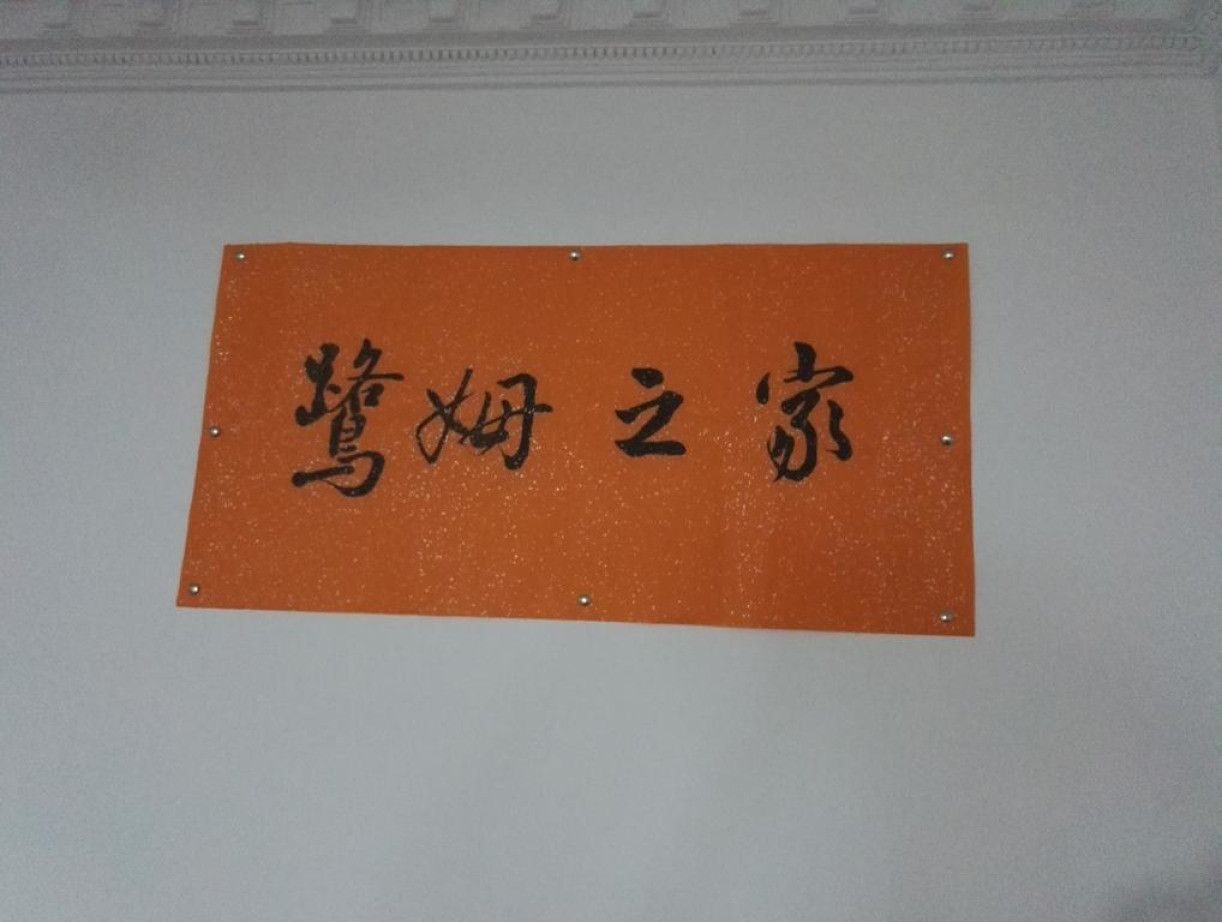 鹭姆之家